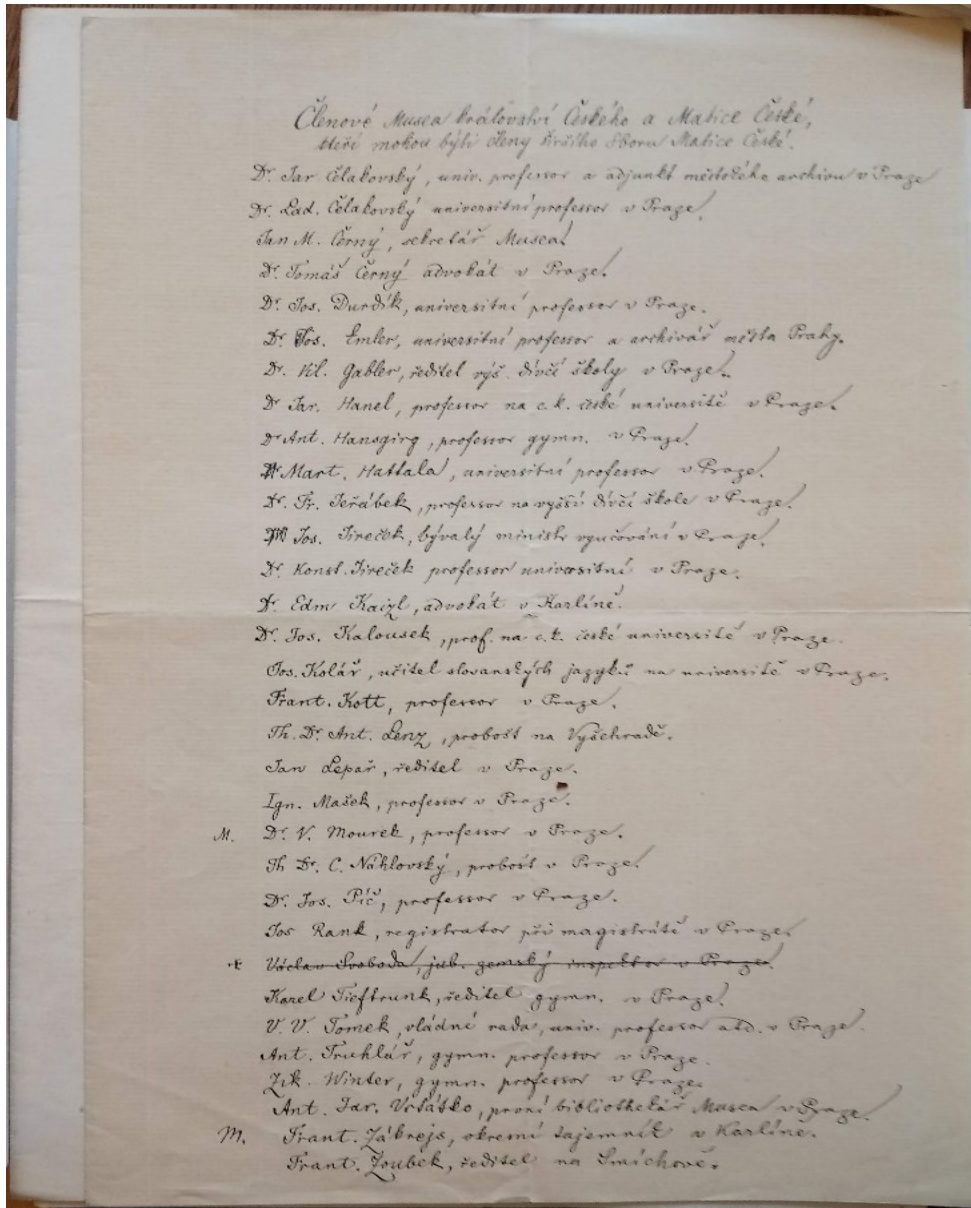 Členové Musea království Českého a Matice České,
kteří mohou býti členy širšího Sboru Matice České.
Dr. Jar Čelakovský, univ. professor a adjunkt městského archivu v Praze
Dr. Lad. Čelakovský universitní professor v Praze.
Jan M. Černý, sekretář Musea.
Dr. Tomáš Černý advokát v Praze.
Dr. Jos. Durdík, universitní professor v Praze.
Dr. Jos. Emler, universitní professor a archivář města Prahy.
Dr. Kl. Gabler, ředitel vyš. dívčí školy v Praze.
Dr Jar. Hanel, professor na c. k. české universitě v Praze.
Dr Ant. Hansgirg, professor gymn. v Praze.
Mart. Hattala, universitní professor v Praze.
Dr. Fr. Jeřábek, professor na vyšší dívčí škole v Praze.
Jos. Jireček, bývalý ministr vyučování v Praze.
Dr. Konst. Jireček professor universitní v Praze.
Dr. Edm Kaizl, advokát v Karlíně.
Dr. Jos. Kalousek, prof. na c. k. české universitě v Praze.
Jos. Kolář, učitel slovanských jazyků na universitě v Praze.
Frant. Kott, professor v Praze.
Th. Dr. Ant. Lenz, probošt na Vyšehradě.
Jan Lepař, ředitel v Praze.
Ign. Mašek, professor v Praze.
M. Dr. V. Mourek, professor v Praze.
Th Dr. C. Náhlovský, probošt v Praze.
Dr. Jos. Píč, professor v Praze.
Jos Rank, registrator při magistrátě v Praze.
Václav Svoboda, jub. zemský inspektor v Praze.
Karel Tieftrunk, ředitel gymn. v Praze.
V. V. Tomek, vládní rada, univ. professor atd. v Praze.
Ant. Truhlář, gymn. professor v Praze.
Zik. Winter, gymn. professor v Praze.
Ant. Jar. Vrťátko, první bibliothekář Musea v Praze.
M. Frant. Zákrejs, okresní tajemník v Karlíně.
Frant. Zoubek, ředitel na Smíchově.